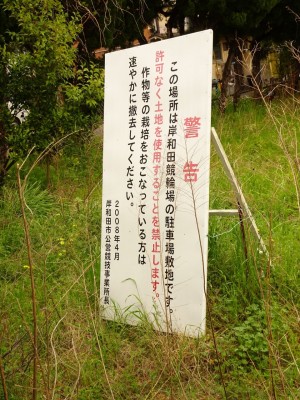 警告
この場所は岸和田競輪場の駐車場敷地です。
許可なく土地を使用することを禁止します。
作物等の栽培をおこなっている方は
速やかに撤去してください。
2008年4月
岸和田市公営競技事業所長